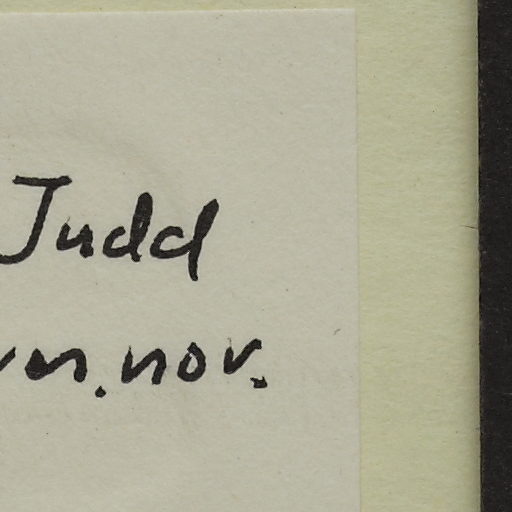 Judd
nov.